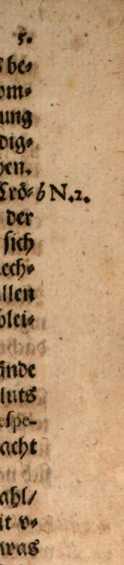 5.
be-
om-
ung
dig-
en.
Crö- b N.2.
der
sich
ech-
llen
blei-
ände
luts
espe-
acht
ahl/
it v-
was